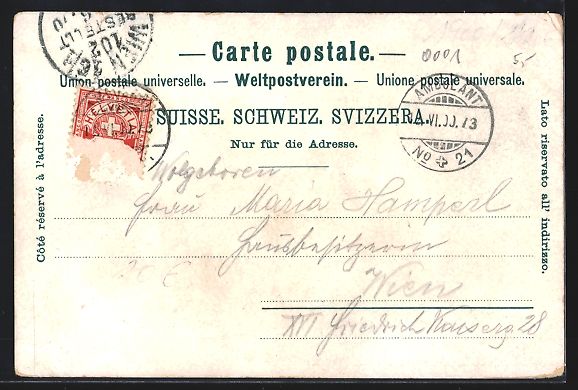 WIEN 10/2
BESTELLT
0001
5,-
— Carte postale. —
Union postale universelle. — Weltpostverein. — Unione postale universale.
HELVETIA
AMBULANT
VI.00. / 3
No 21
SUISSE. SCHWEIZ. SVIZZERA.
Nur für die Adresse.
Côté réservé à l'adresse.
Lato riservato all' indirizzo.
Wolgeboren
Frau Maria Hamperl
Hausbesitzerin
Wien
XVI Friedrich Kaiserg 28